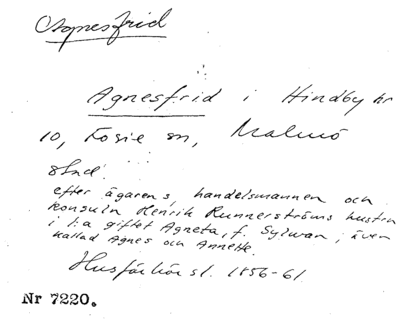 Agnesfrid
Agnesfrid i Hindby nr
10, Fosie sn, Malmö
stad.
efter ägarens, handelsmannen och
konsuln Henrik Runnerströms hustru
i 1:a giftet Agneta, f. Sylwan, även
kallad Agnes och Annette.
Husförhörsl. 1856-61.
Nr 7220.